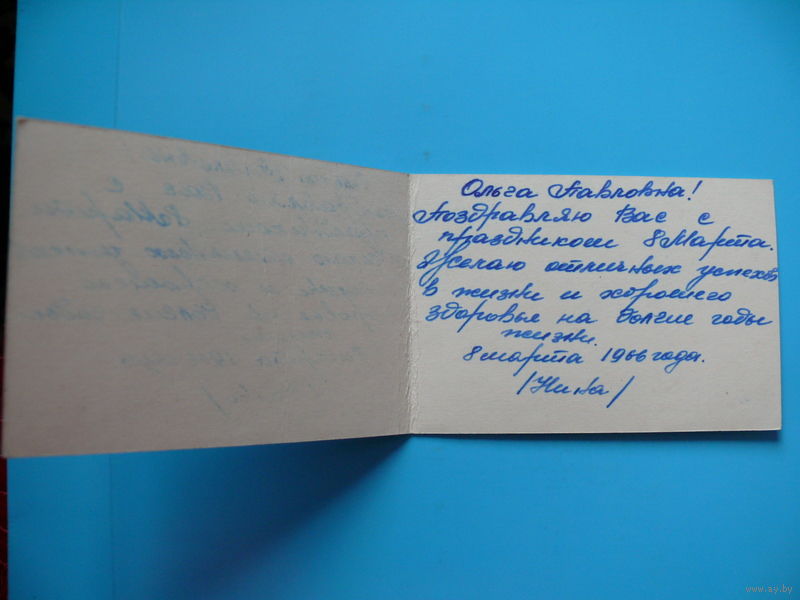 Ольга Павловна!
Поздравляю Вас с
праздником 8 Марта.
Желаю отличных успехов
в жизни и хорошего
здоровье на долгие годы
жизни.
8 марта 1966 года.
/Нина/
www.ay.by